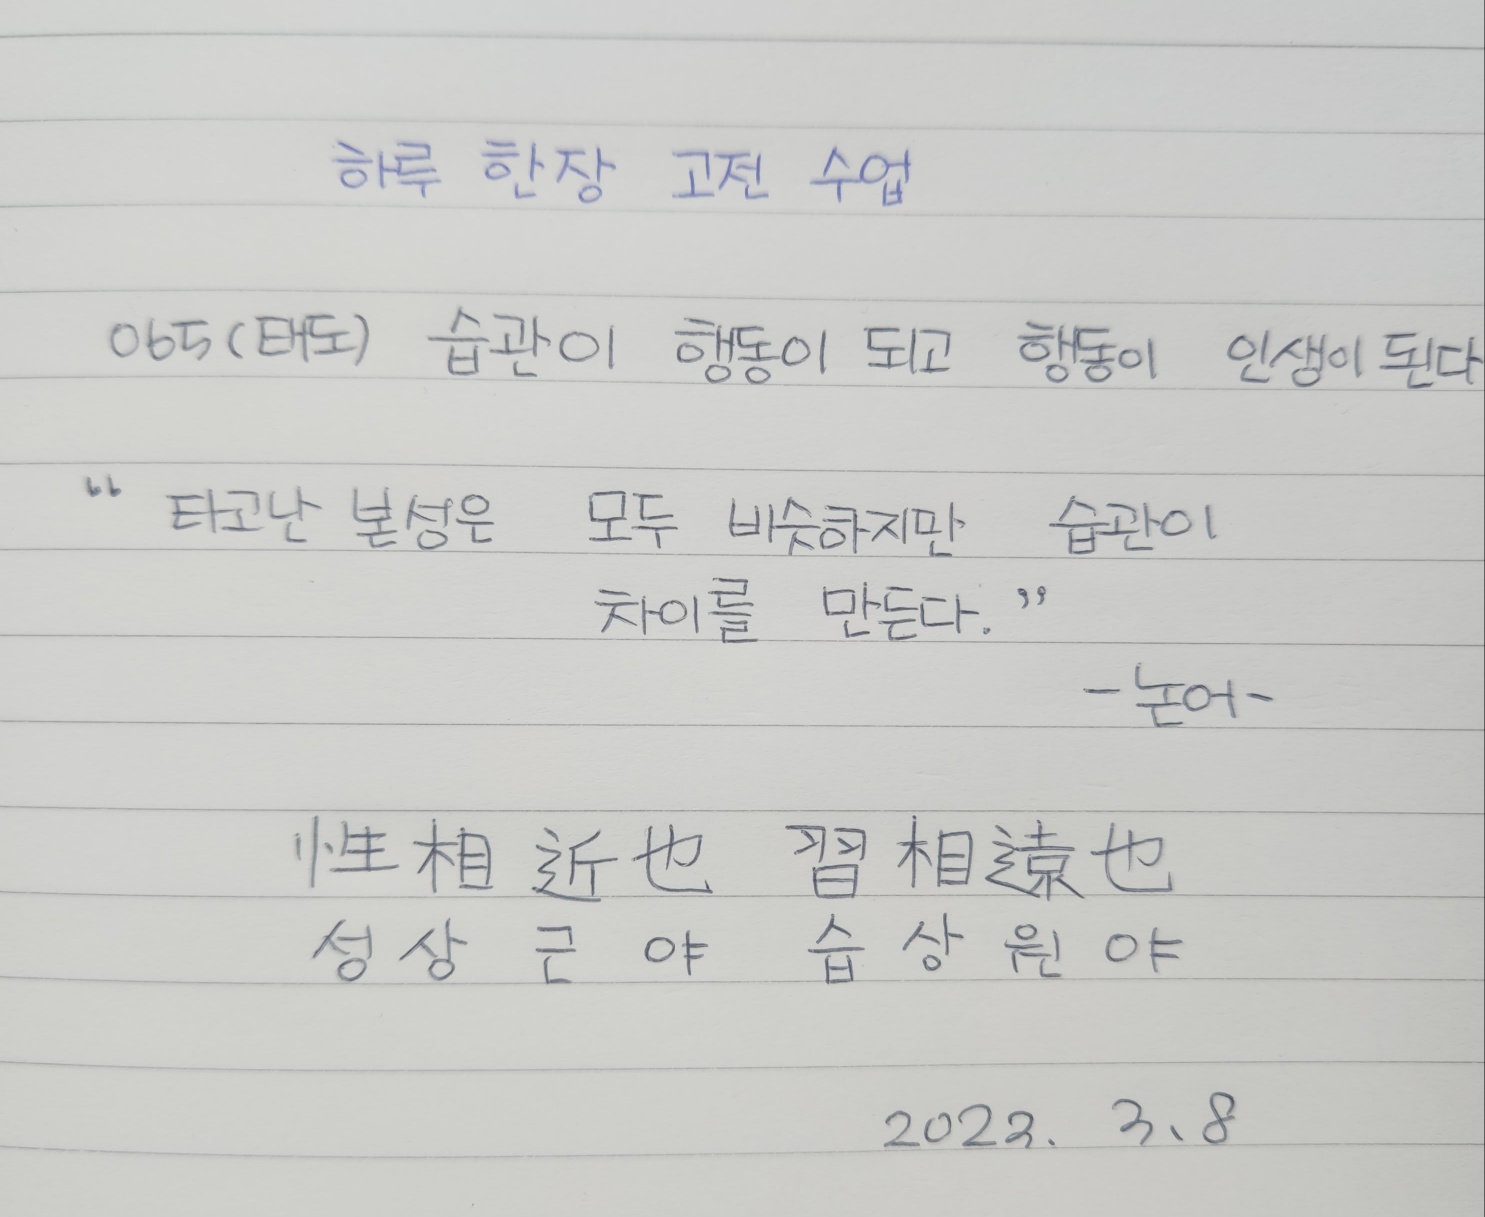 하루 한장 고전 수업
065(태도) 습관이 행동이 되고 행동이 인생이 된다
“ 타고난 본성은 모두 비슷하지만 습관이
차이를 만든다.”
-논어-
性相近也 習相遠也
성상근야 습상원야
2022. 3.8